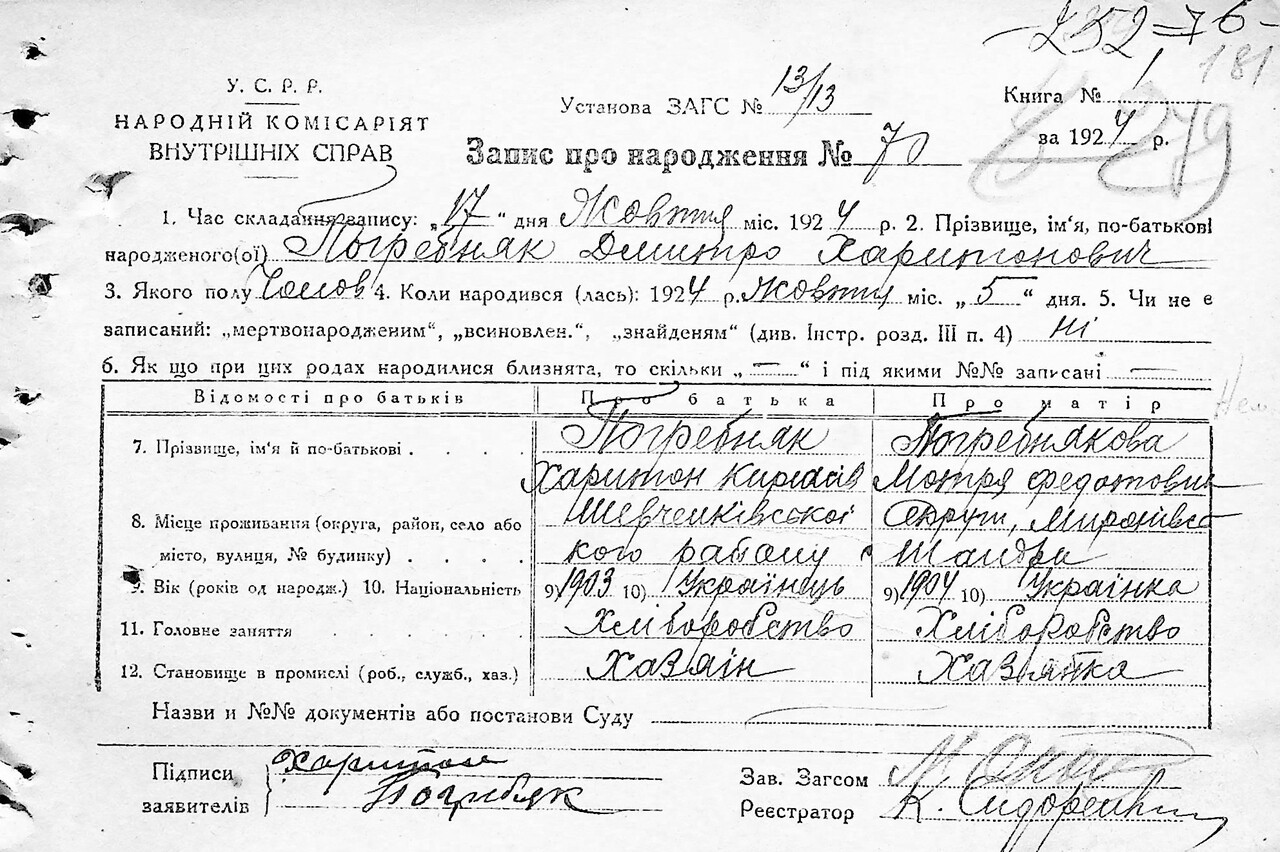 -252-76-
181
У. С. Р. Р.
НАРОДНІЙ КОМІСАРІЯТ
ВНУТРІШНІХ СПРАВ
Установа ЗАГС № 13/13
Книга № 1
за 1924 р.
279
Запис про народження № 70
1. Час складання запису: „17“ дня Жовтня міс. 1924 р. 2. Прізвище, ім‘я, по-батькові
народженого(ої) Погребняк Дмитро Харитонович
3. Якого полу Чолов 4. Коли народився (лась): 1924 р. Жовтня міс. „5“ дня. 5. Чи не є
записаний: „мертвонародженим“, „всиновлен.“, „знайденям“ (див. Інстр. розд. III п. 4) ні
6. Як що при цих родах народилися близнята, то скільки „—“ і під якими №№ записані —
Відомості про батьків Про батька Про матір
7. Прізвище, ім‘я й по-батькові . . . . Погребняк Погребнякова
Харитон Мотря Федотовна
8. Місце проживання (округа, район, село або Шевченківської Округи, Миронівсь
місто, вулиця, № будинку) . . . . кого району с Шандра
9. Вік (років од народж.) 10. Національність 9) 1903 10) Українець 9) 1904 10) Українка
11. Головне заняття . . . . . Хліборобство Хліборобство
12. Становище в промислі (роб., служб., хаз.) Хазаін Хазяйка
Назви и №№ документів або постанови Суду —
Підписи Харитон
заявителів Погрибняк
Зав. Загсом
Реєстратор К. Сидоренко